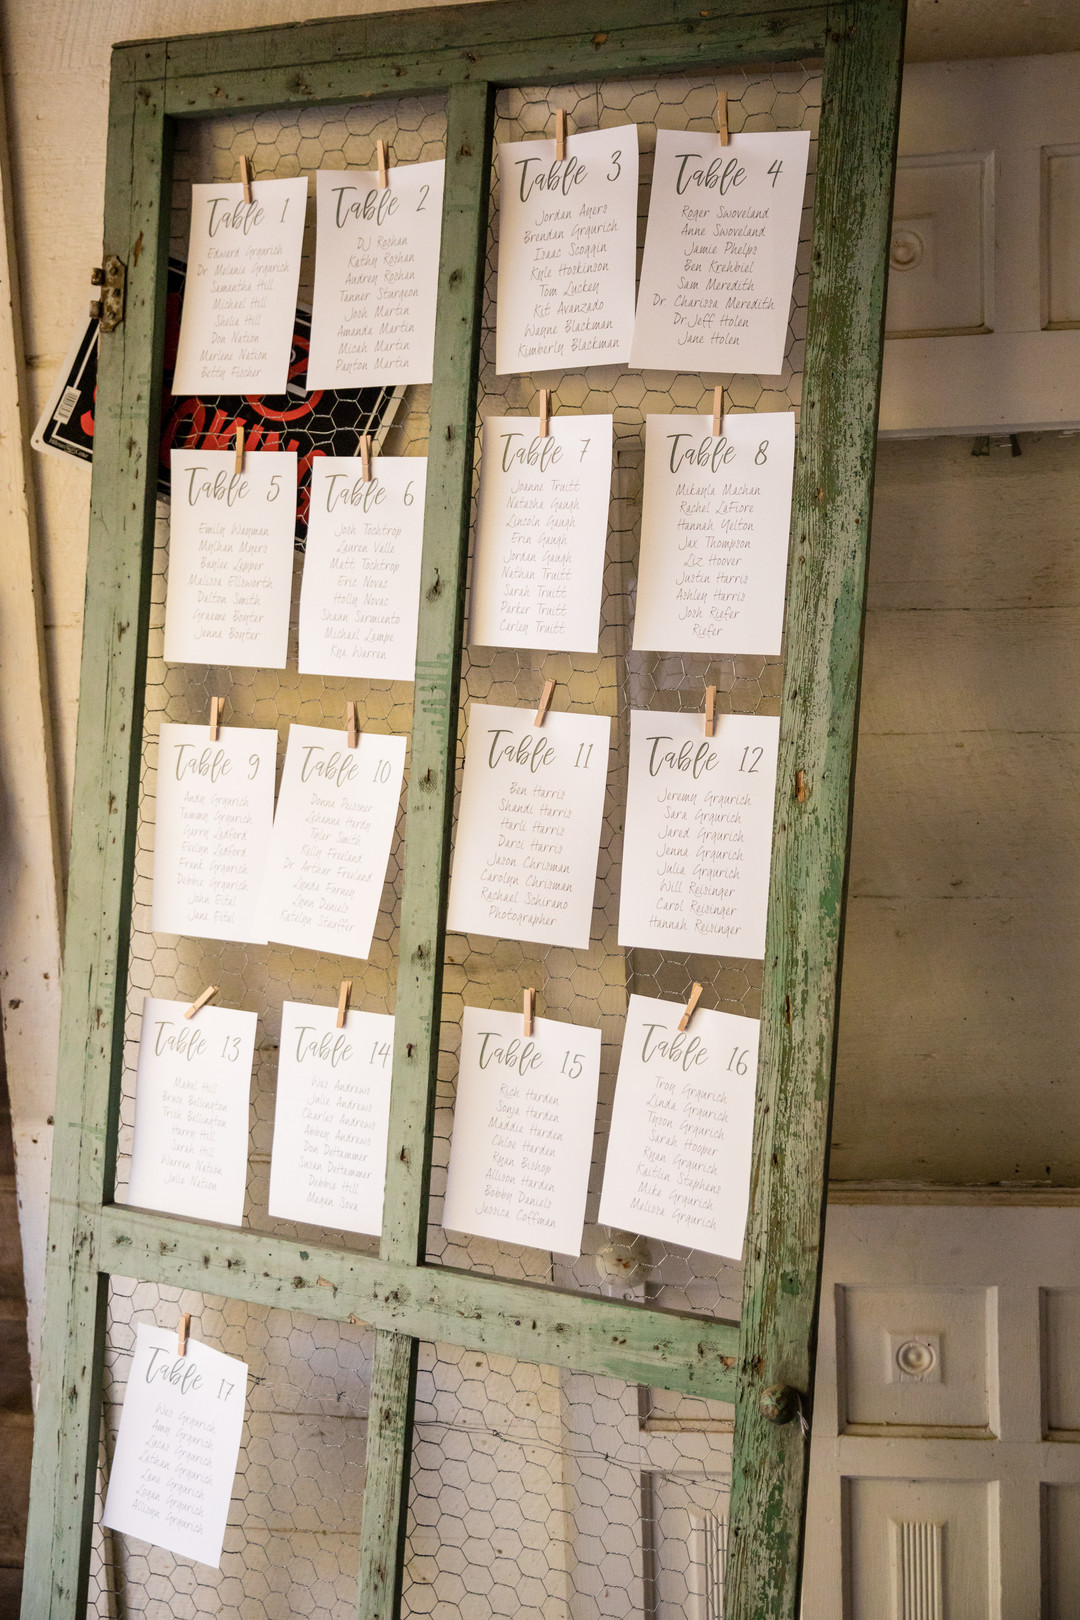 Table 1
Edward Grgurich
Dr Melania Grgurich
Samantha Hill
Michael Hill
Shelia Hill
Don Nation
Marlene Nation
Betty Fischer
Table 2
DJ Roshan
Kathy Roshan
Audrey Roshan
Tanner Sturgeon
Josh Martin
Amanda Martin
Micah Martin
Payton Martin
Table 3
Jordan Ayers
Brendan Grgurich
Isaac Scoggin
Kyle Hoskinson
Tom Luckey
Kit Avanzado
Wayne Blackman
Kimberly Blackman
Table 4
Roger Swoveland
Anne Swoveland
Jamie Phelps
Ben Krehbiel
Sam Meredith
Dr Charissa Meredith
Dr Jeff Holen
Jane Holen
Table 5
Emily Wayman
Mylhan Myers
Baylee Lepper
Malissa Ellsworth
Dalton Smith
Graeme Boyter
Jenna Boyter
Table 6
Josh Tochtrop
Lauren Valle
Matt Tochtrop
Eric Novac
Holly Novac
Shaun Sarmiento
Michael Lampe
Kya Warren
Table 7
Joanne Truitt
Natasha Gaugh
Lincoln Gaugh
Erin Gaugh
Jordan Gaugh
Nathan Truitt
Sarah Truitt
Parker Truitt
Carley Truitt
Table 8
Mikayla Machan
Rachel LaFiore
Hannah Yelton
Jax Thompson
Liz Hoover
Justin Harris
Ashley Harris
Josh Riefer
Riefer
Table 9
Andy Grgurich
Tammy Grgurich
Garry Ledford
Evelyn Ledford
Frank Grgurich
Debbie Grgurich
John Estal
Jane Estal
Table 10
Donna Peissner
Lehanna Hardy
Tyler Smith
Kelly Freeland
Dr Arthur Freeland
Lynda Furney
Lynn Daniels
Katelyn Stauffer
Table 11
Ben Harris
Shandi Harris
Harli Harris
Darci Harris
Jason Chrisman
Carolyn Chrisman
Rachael Schirano
Photographer
Table 12
Jeremy Grgurich
Sara Grgurich
Jared Grgurich
Jenna Grgurich
Julia Grgurich
Will Reisinger
Carol Reisinger
Hannah Reisinger
Table 13
Mabel Hill
Bruce Bellington
Trish Bellington
Harry Hill
Sarah Hill
Warren Nation
Julie Nation
Table 14
Wes Andrews
Julie Andrews
Charles Andrews
Abbey Andrews
Don Dettammer
Susan Dettammer
Debbie Hill
Megan Sova
Table 15
Rich Harden
Sonja Harden
Maddie Harden
Chloe Harden
Ryan Bishop
Allison Harden
Bobby Daniels
Jessica Coffman
Table 16
Troy Grgurich
Linda Grgurich
Tyson Grgurich
Sarah Hooper
Ryan Grgurich
Kaitlin Stephens
Mike Grgurich
Melissa Grgurich
Table 17
Wes Grgurich
Amy Grgurich
Lucas Grgurich
Lathan Grgurich
Lane Grgurich
Logan Grgurich
Allison Grgurich